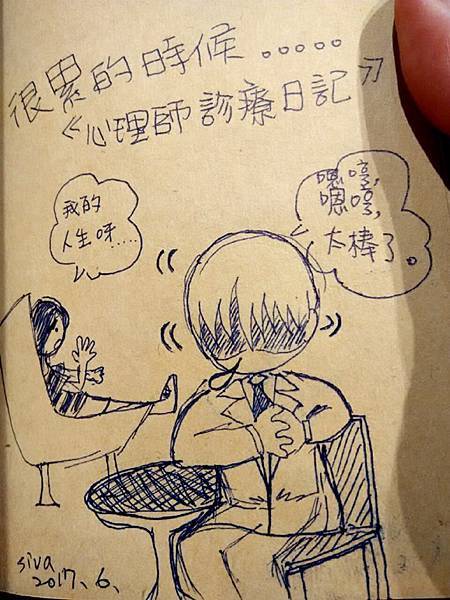 很累的時候.....
《心理師診療日記》
我的
人生呀....
嗯哼,
嗯哼,
太棒了。
siva
2017、6、